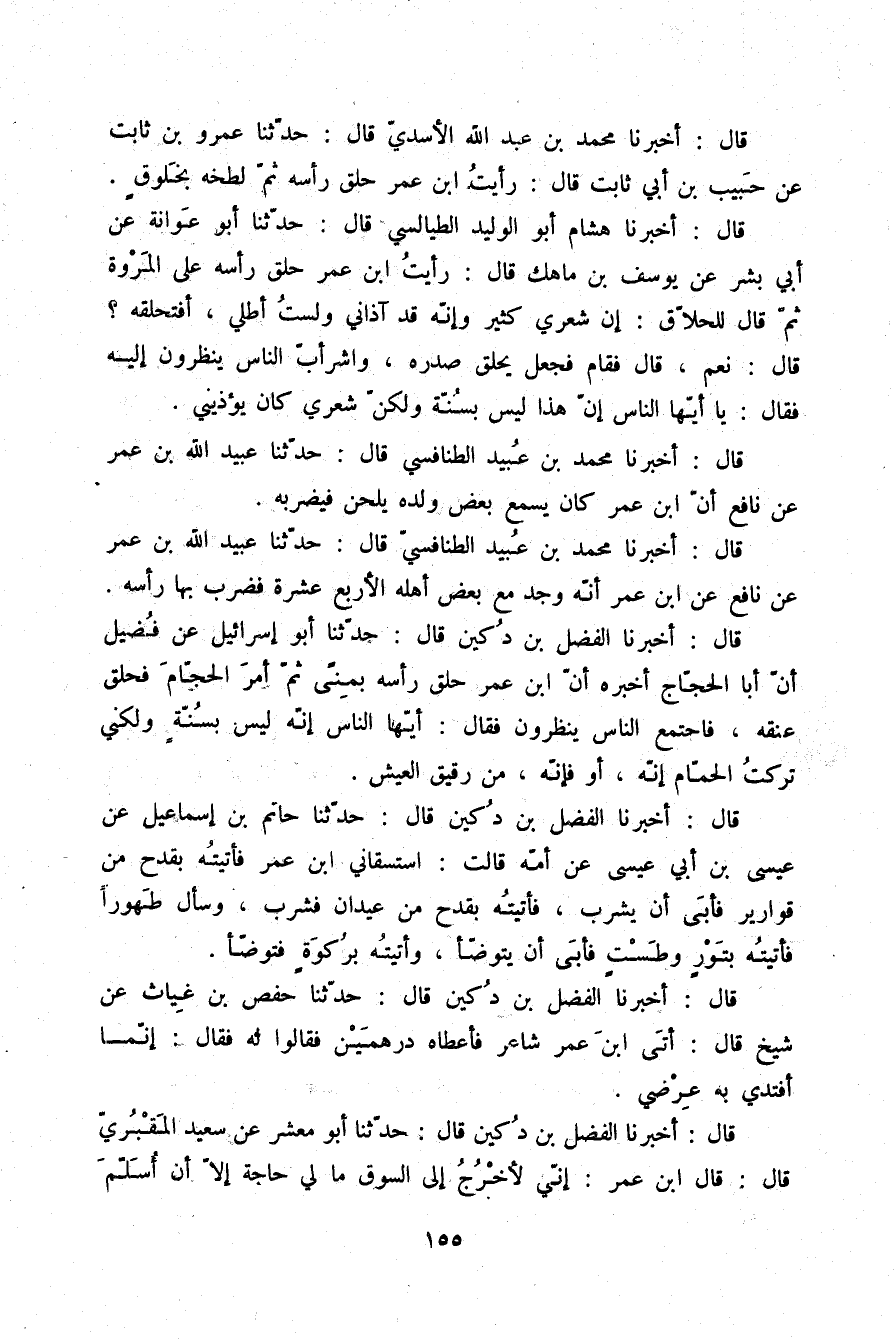 قال : أخبرنا محمد بن عبد الله الأسديّ قال : حدّثنا عمرو بن ثابت
عن حَبيب بن أبي ثابت قال : رأيتُ ابن عمر حلق رأسه ثمّ لطخه بخَلوقٍ .
قال : أخبرنا هشام أبو الوليد الطيالسي قال : حدّثنا أبو عَوانة عن
أبي بشر عن يوسف بن ماهك قال : رأيتُ ابن عمر حلق رأسه على المَرْوة
ثمّ قال للحلاّق : إن شعري كثير وإنّه قد آذاني ولستُ أطلي ، أفتحلقه ؟
قال : نعم ، قال فقام فجعل يحلق صدره ، واشرأبّ الناس ينظرون إليه
فقال : يا أيّها الناس إنّ هذا ليس بسُنّة ولكنّ شعري كان يؤذيني .
قال : أخبرنا محمد بن عُبيد الطنافسي قال : حدّثنا عبيد الله بن عمر
عن نافع أنّ ابن عمر كان يسمع بعض ولده يلحن فيضربه .
قال : أخبرنا محمد بن عُبيد الطنافسيّ قال : حدّثنا عبيد الله بن عمر
عن نافع عن ابن عمر أنّه وجد مع بعض أهله الأربع عشرة فضرب بها رأسه .
قال : أخبرنا الفضل بن دُكين قال : حدّثنا أبو إسرائيل عن فُضيل
أنّ أبا الحجّاج أخبره أنّ ابن عمر حلق رأسه بمِنّى ثمّ أمرَ الحجّامَ فحلق
عنقه ، فاجتمع الناس ينظرون فقال : أيّها الناس إنّه ليس بسُنّةٍ ولكني
تركتُ الحمّام إنّه ، أو فإنّه ، من رقيق العيش .
قال : أخبرنا الفضل بن دُكين قال : حدّثنا حاتم بن إسماعيل عن
عيسى بن أبي عيسى عن أمّه قالت : استسقاني ابن عمر فأتيتُه بقدح من
قوارير فأبَى أن يشرب ، فأتيتُه بقدح من عيدان فشرب ، وسأل طَهوراً
فأتيتُه بتَوْرٍ وطَسْتٍ فأبَى أن يتوضّأ ، وأتيتُه برُكوَةٍ فتوضّأ .
قال : أخبرنا الفضل بن دُكين قال : حدّثنا حفص بن غياث عن
شيخ قال : أتَى ابنَ عمر شاعر فأعطاه درهمَيْن فقالوا له فقال : إنّما
أفتدي به عِرْضي .
قال : أخبرنا الفضل بن دُكين قال : حدّثنا أبو معشر عن سعيد المَقْبُريّ
قال : قال ابن عمر : إنّي لأخْرُجُ إلى السوق ما لي حاجة إلاّ أن أُسَلّمَ
١٥٥